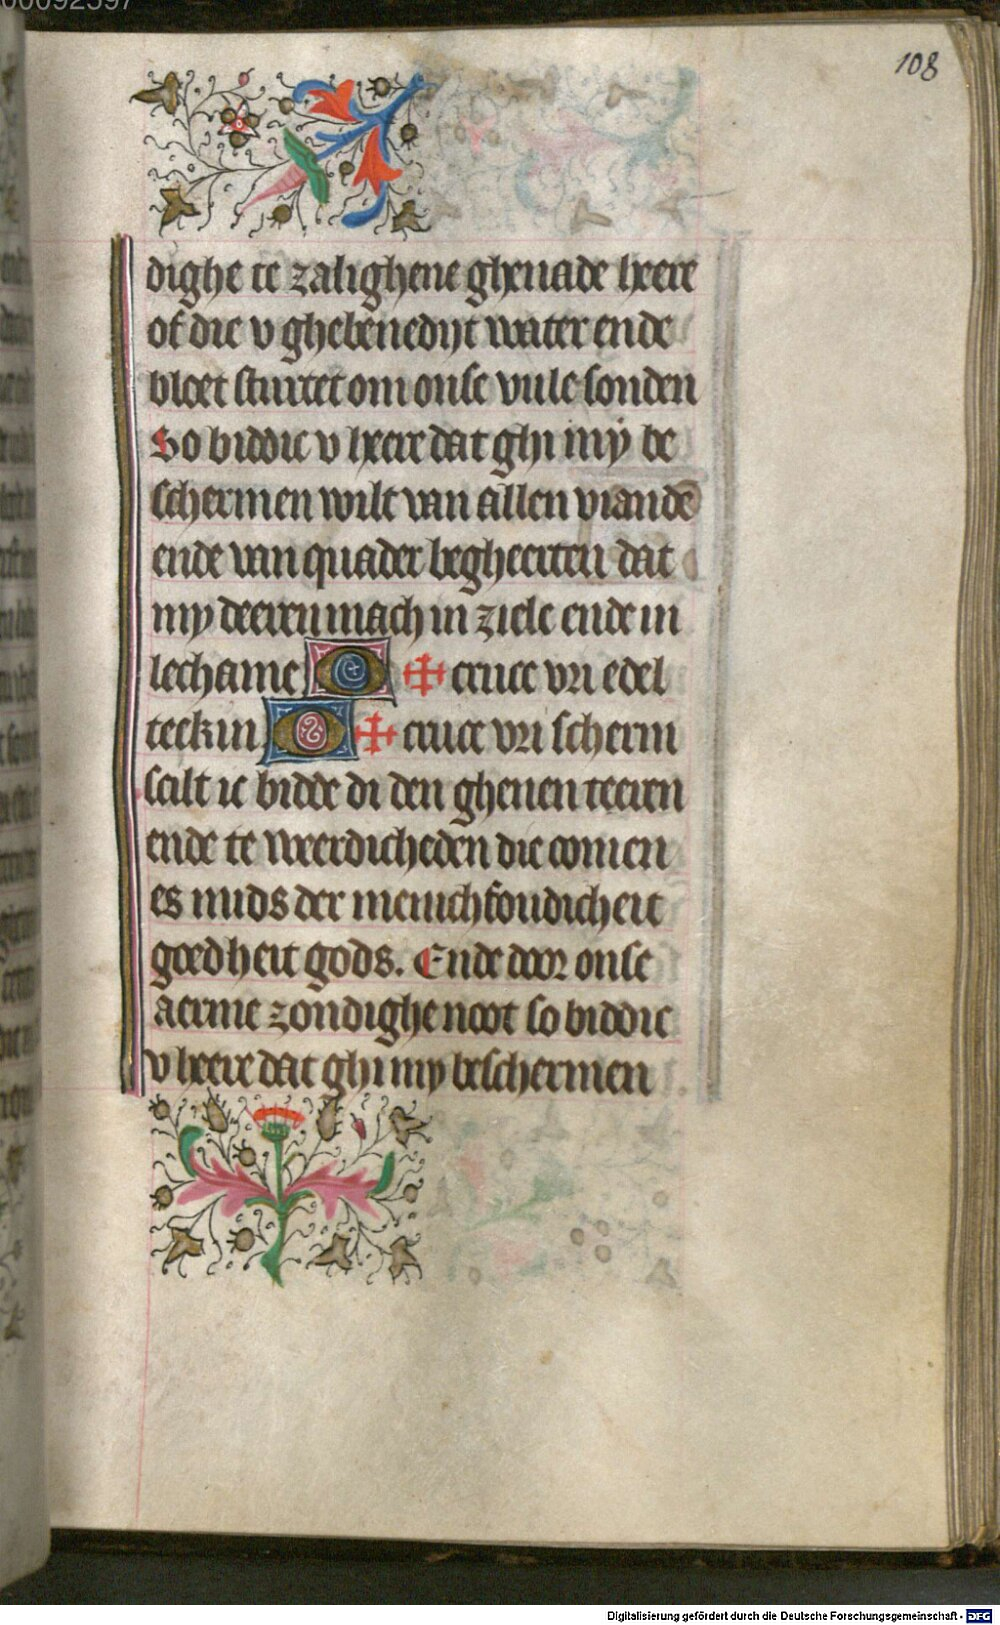 00092597
108
dighe te zalighene ghenade heere
of die v ghebenedijt water ende
bloet sturtet om onse vule sonden
So biddic v heere dat ghi mÿ be
schermen wilt van allen viandē
ende van quader begheerten dat
my deeren mach in ziele ende in
lechame O ✠ cruce vri edel
teekin O ✠ cruce vri scherm
scilt ic bidde di den ghenen teeren
ende te weerdicheden die comen
es mids der menichfoudicheit
goedheit gods. Ende door onse
aerme zondighe noot so biddic
v heere dat ghi my beschermen
Digitalisierung gefördert durch die Deutsche Forschungsgemeinschaft - DFG